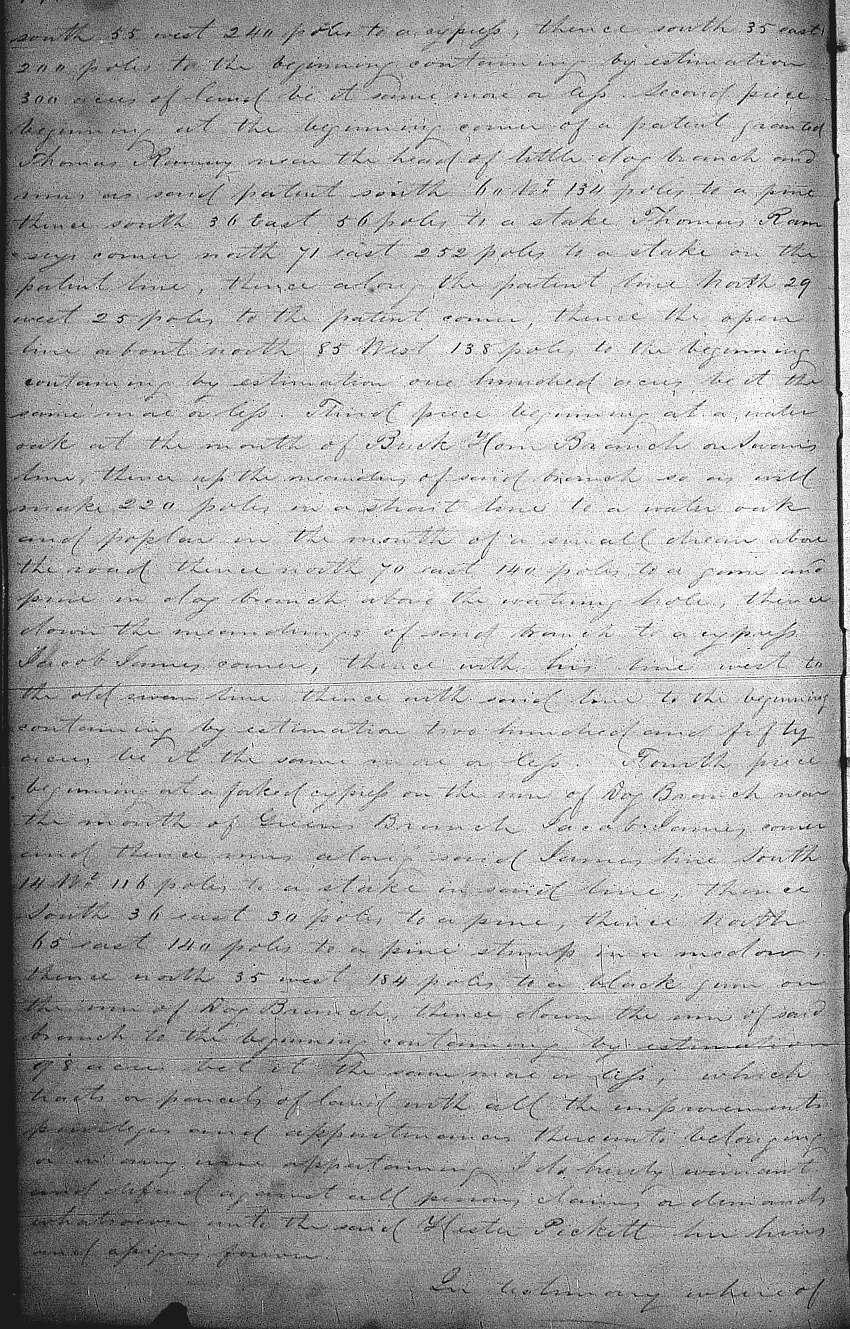 south 55 west 240 poles to a cypress, thence south 35 east
200 poles to the beginning containing by estimation
300 acres of land be it same more or less. Second piece
beginning at the beginning corner of a patent granted
Thomas Ramsey near the head of little dog branch and
runs as said patent south 60 Wt 134 poles to a pine
thence south 36 East 56 poles to a stake Thomas Ram
seys corner north 71 east 252 poles to a stake on the
patent line, thence along the patent line North 29
west 25 poles to the patent corner, thence the open
line about north 85 West 138 poles to the beginning
containing by estimation one hundred acres be it the
same more or less. Third piece beginning at a water
oak at the mouth of Buck Horn Branch on
line, thence up the meanders of said branch so as will
make 220 poles in a strait line to a water oak
and poplar in the mouth of a small drean above
the road thence north 70 east 140 poles to a gum and
pine in dog branch above the watering hole, thence
down the meanderings of said branch to a cypress
Jacob James corner, thence with his line west to
the old swan line thence with said line to the beginning
containing by estimation two hundred and fifty
acres be it the same more or less. Fourth piece
beginning at a forked cypress on the run of Dog Branch near
the mouth of Greens Branch Jacob James, corner
and thence runs along said James line South
14 Wt 116 poles to a stake in said line, thence
South 36 east 30 poles to a pine, thence North
65 east 140 poles to a pine stump in a medow,
thence north 35 west 184 poles to a black gum on
the run of Dog Branch, thence down the run of said
branch to the beginning containing by estimation
98 acres be it the same more or less, which
tracts or parcels of land with all the improvements
privileges and appurtinances thereunto belonging
or in any wise appertaining I do hereby warrant
and defend against all persons claims or demands
whatsoever unto the said Hester Pickett her heirs
and assigns forever.
In testimony whereof